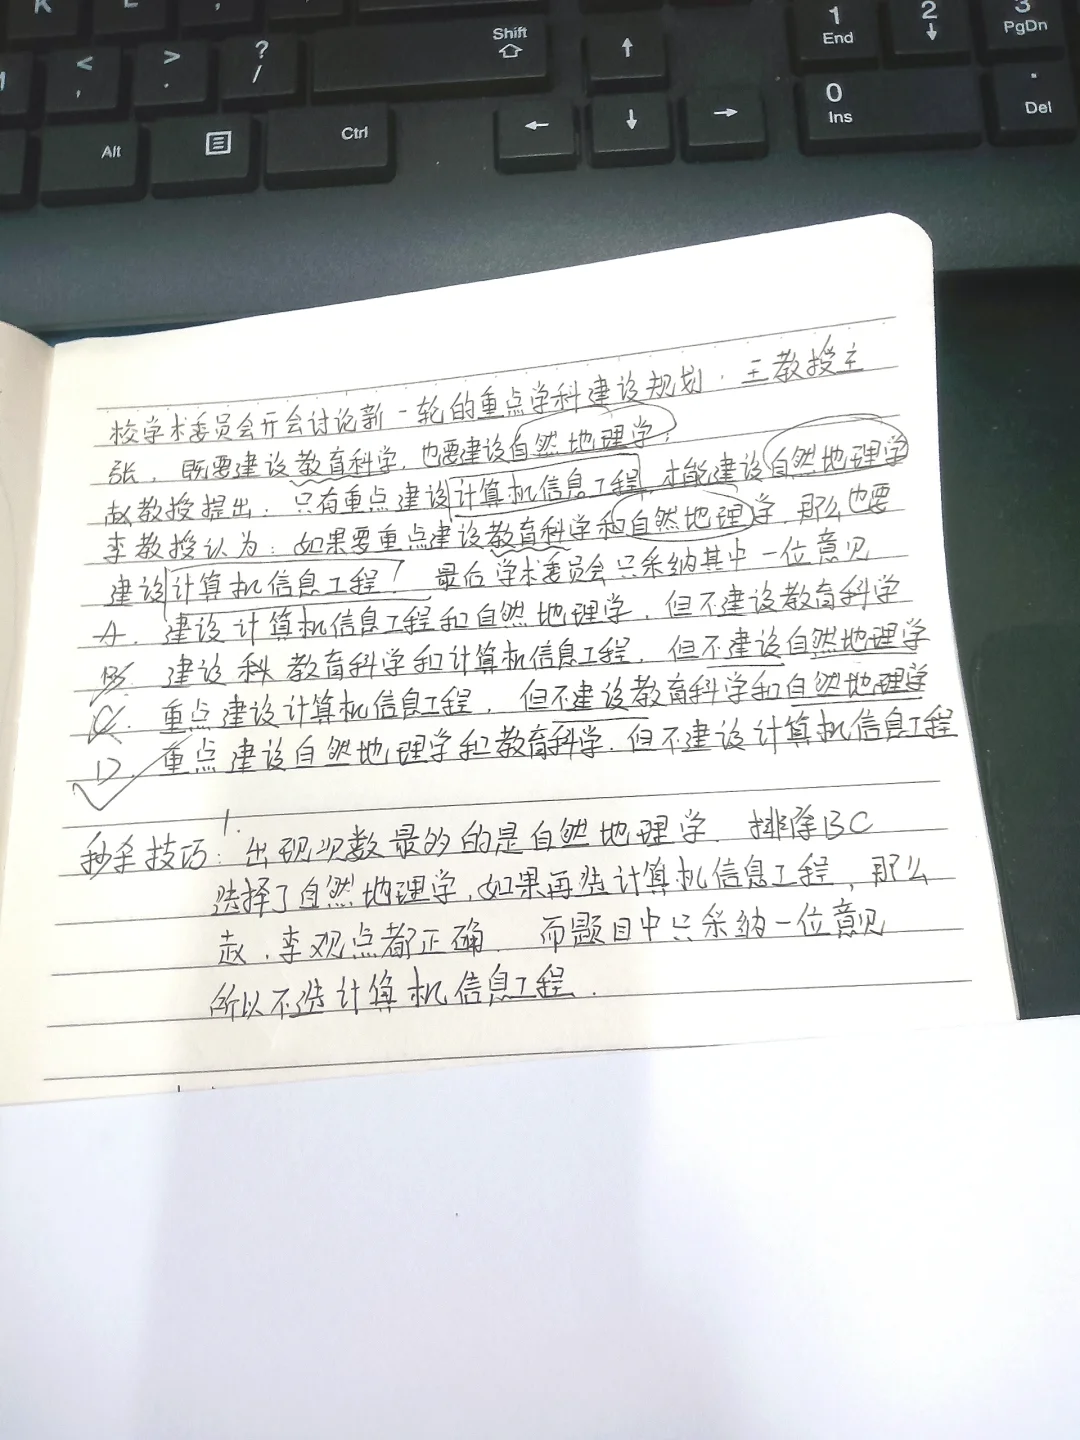 K
L
Shift
1
End
2
3
PgDn
<
,
>
.
?
/
0
Ins
.
Del
Alt
Ctrl
校学术委员会开会讨论新一轮的重点学科建设规划.王教授主
张,既要建设教育科学,也要建设自然地理学;
赵教授提出:只有重点建设计算机信息工程,才能建设自然地理学
李教授认为:如果要重点建设教育科学和自然地理学,那么也要
建设计算机信息工程! 最后学术委员会只采纳其中一位意见
A. 建设计算机信息工程和自然地理学,但不建设教育科学
B. 建设科教育科学和计算机信息工程,但不建设自然地理学
C. 重点建设计算机信息工程,但不建设教育科学和自然地理学
D. 重点建设自然地理学和教育科学.但不建设计算机信息工程
1.
秒杀技巧:出现次数最多的的是自然地理学.排除BC
选择了自然地理学,如果再选计算机信息工程,那么
赵.李观点都正确.而题目中只采纳一位意见
所以不选计算机信息工程.